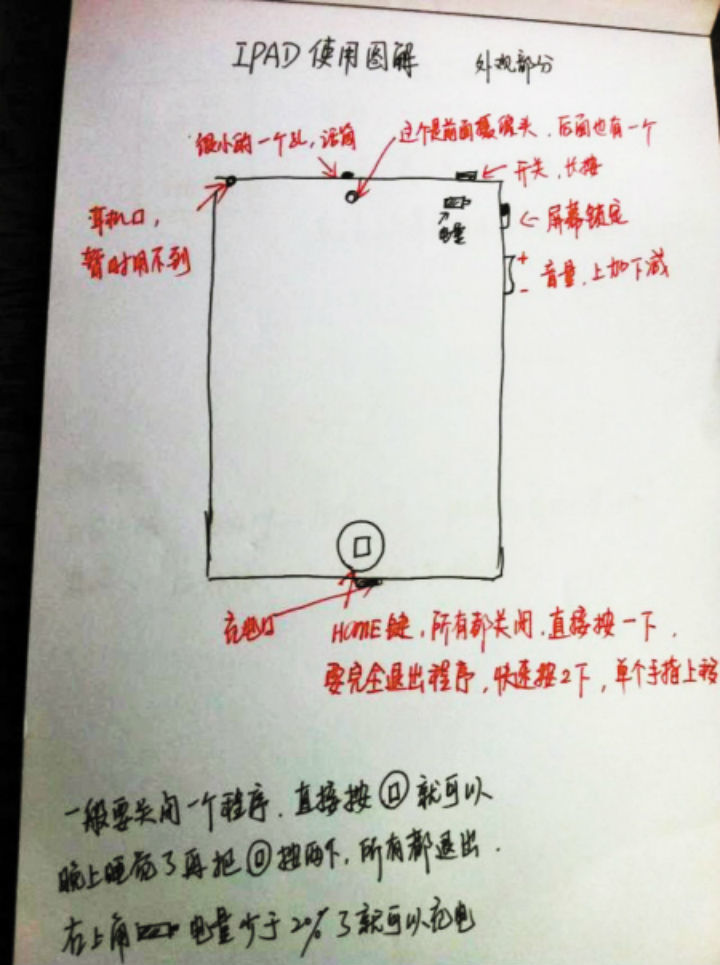 IPAD 使用图解 外观部分
很小的一个孔，话筒
这个是前面摄像头．后面也有一个
开关．长按
耳机口，
暂时用不到
电量
屏幕锁定
+
音量，上加下减
-
充电口
HOME键，所有都关闭．直接按一下．
要完全退出程序，快速按2下，单个手指上移
一般要关闭一个程序．直接按就可以
晚上睡觉了再把按两下，所有都退出．
右上角电量少于20%了就可以充电